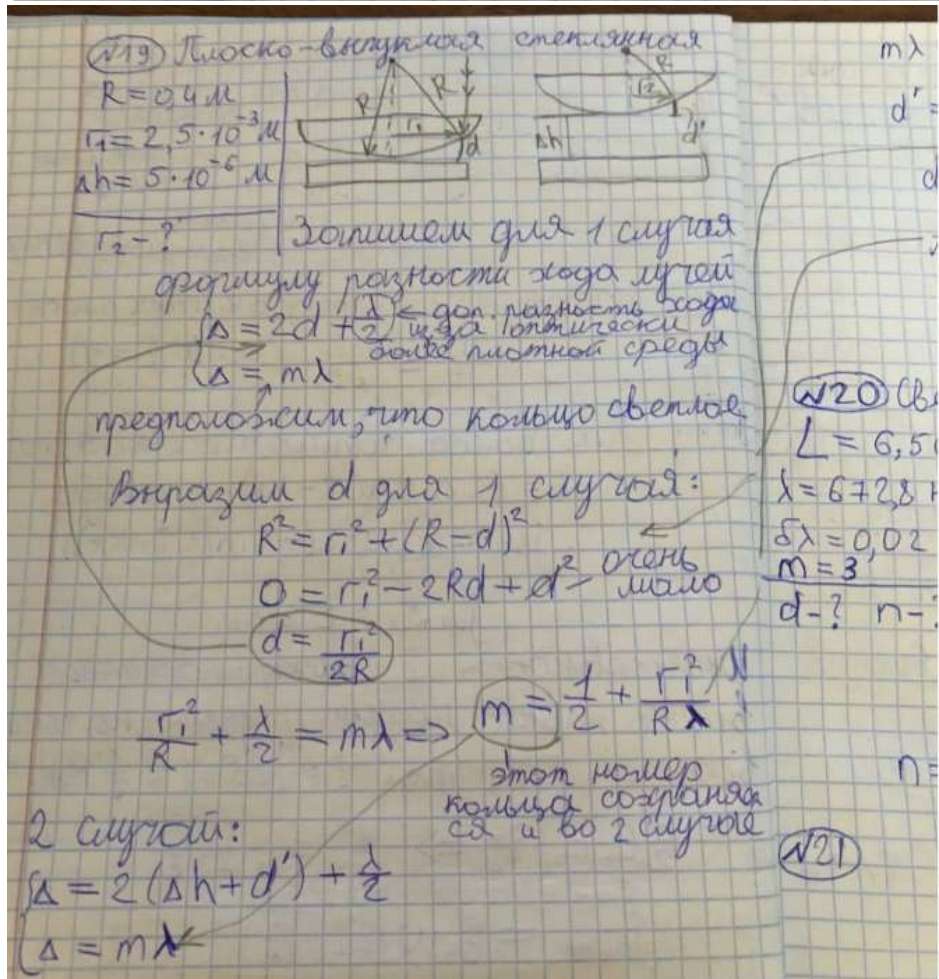 №19 Плоско-выпуклая стеклянная
R = 0,4 м
r₁ = 2,5·10⁻³ м
Δh = 5·10⁻⁶ м
r₂ - ?
R R r₁ d
R r₂ Δh d'
Запишем для 1 случая
формулу разности хода лучей
Δ = 2d + λ/2 ← доп. разность хода
из-за оптически
более плотной среды
Δ = mλ
предположим, что кольцо светлое
Выразим d для 1 случая:
R² = r₁² + (R-d)²
0 = r₁² - 2Rd + d² - очень
мало
d = r₁²/2R
r₁²/R + λ/2 = mλ => m = 1/2 + r₁²/Rλ
этот номер
кольца сохраняет
ся и во 2 случае
2 случай:
Δ = 2(Δh + d') + λ/2
Δ = mλ
mλ
d' =
d
№20 Св
L = 6,5
λ = 672,8 н
δλ = 0,02
m = 3
d-? n-?
n =
№21